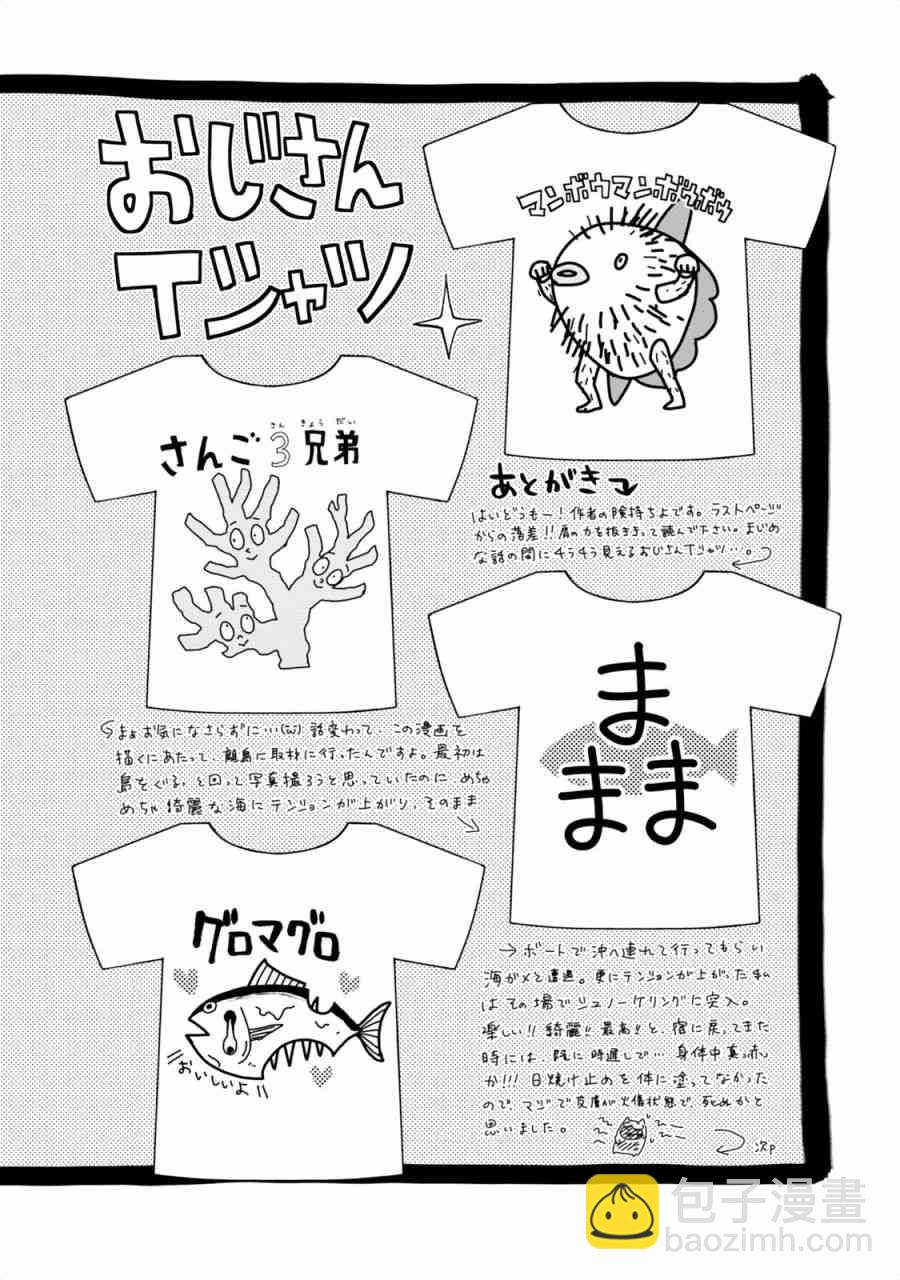 おじさん
Tシャツ
マンボウマンボウボウ
さん きょう だい
さんご3兄弟
あとがき
はいどうもー！作者の険持ちよです。ラストページ
からの落差！！肩の力を抜ききって読んで下さい。まじめ
な話の間にチラチラ見えるおじさんTシャツ…。
ままま
まぁお気になさらずに…(w) 話変わって、この漫画を
描くにあたって、離島に取材に行ったんですよ。最初は
島をぐるっと回って写真撮ろうと思っていたのに、めちゃ
めちゃ綺麗な海にテンションが上がり、そのまま
グロマグロ
おいしいよ!!
→ボートで沖へ連れて行ってもらい
海ガメと遭遇。更にテンションが上がった私
はその場でシュノーケリングに突入。
楽しい!!綺麗!!最高!!と、宿に戻ってきた
時には、既に時遅しで…身体中真っ赤
か!!!日焼け止めを体に塗ってなかった
ので、マジで皮膚が火傷状態で、死ぬかと
思いました。
次P
包子漫畫
baozimh.com